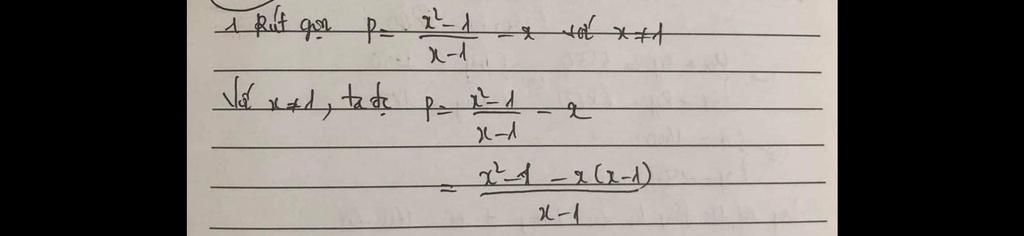 1 Rút gọn P = x² - 1 / x - 1 - x với x ≠ 1
Với x ≠ 1, ta đc P = x² - 1 / x - 1 - x
= x² - 1 - x(x - 1) / x - 1